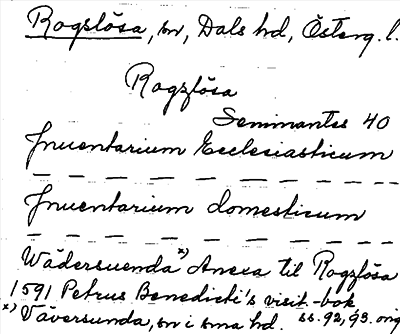 Rogslösa, sn, Dals hd, Österg. l.
Rogzlösa
Seminantes 40
Inuentarium Ecclesiasticum
Inuentarium domesticum
Wädersuenda x) Anexa til Rogzlösa
1591 Petrus Benedicti's visit-bok
x) Väversunda, sn i sma hd. ss. 92, 93. orig